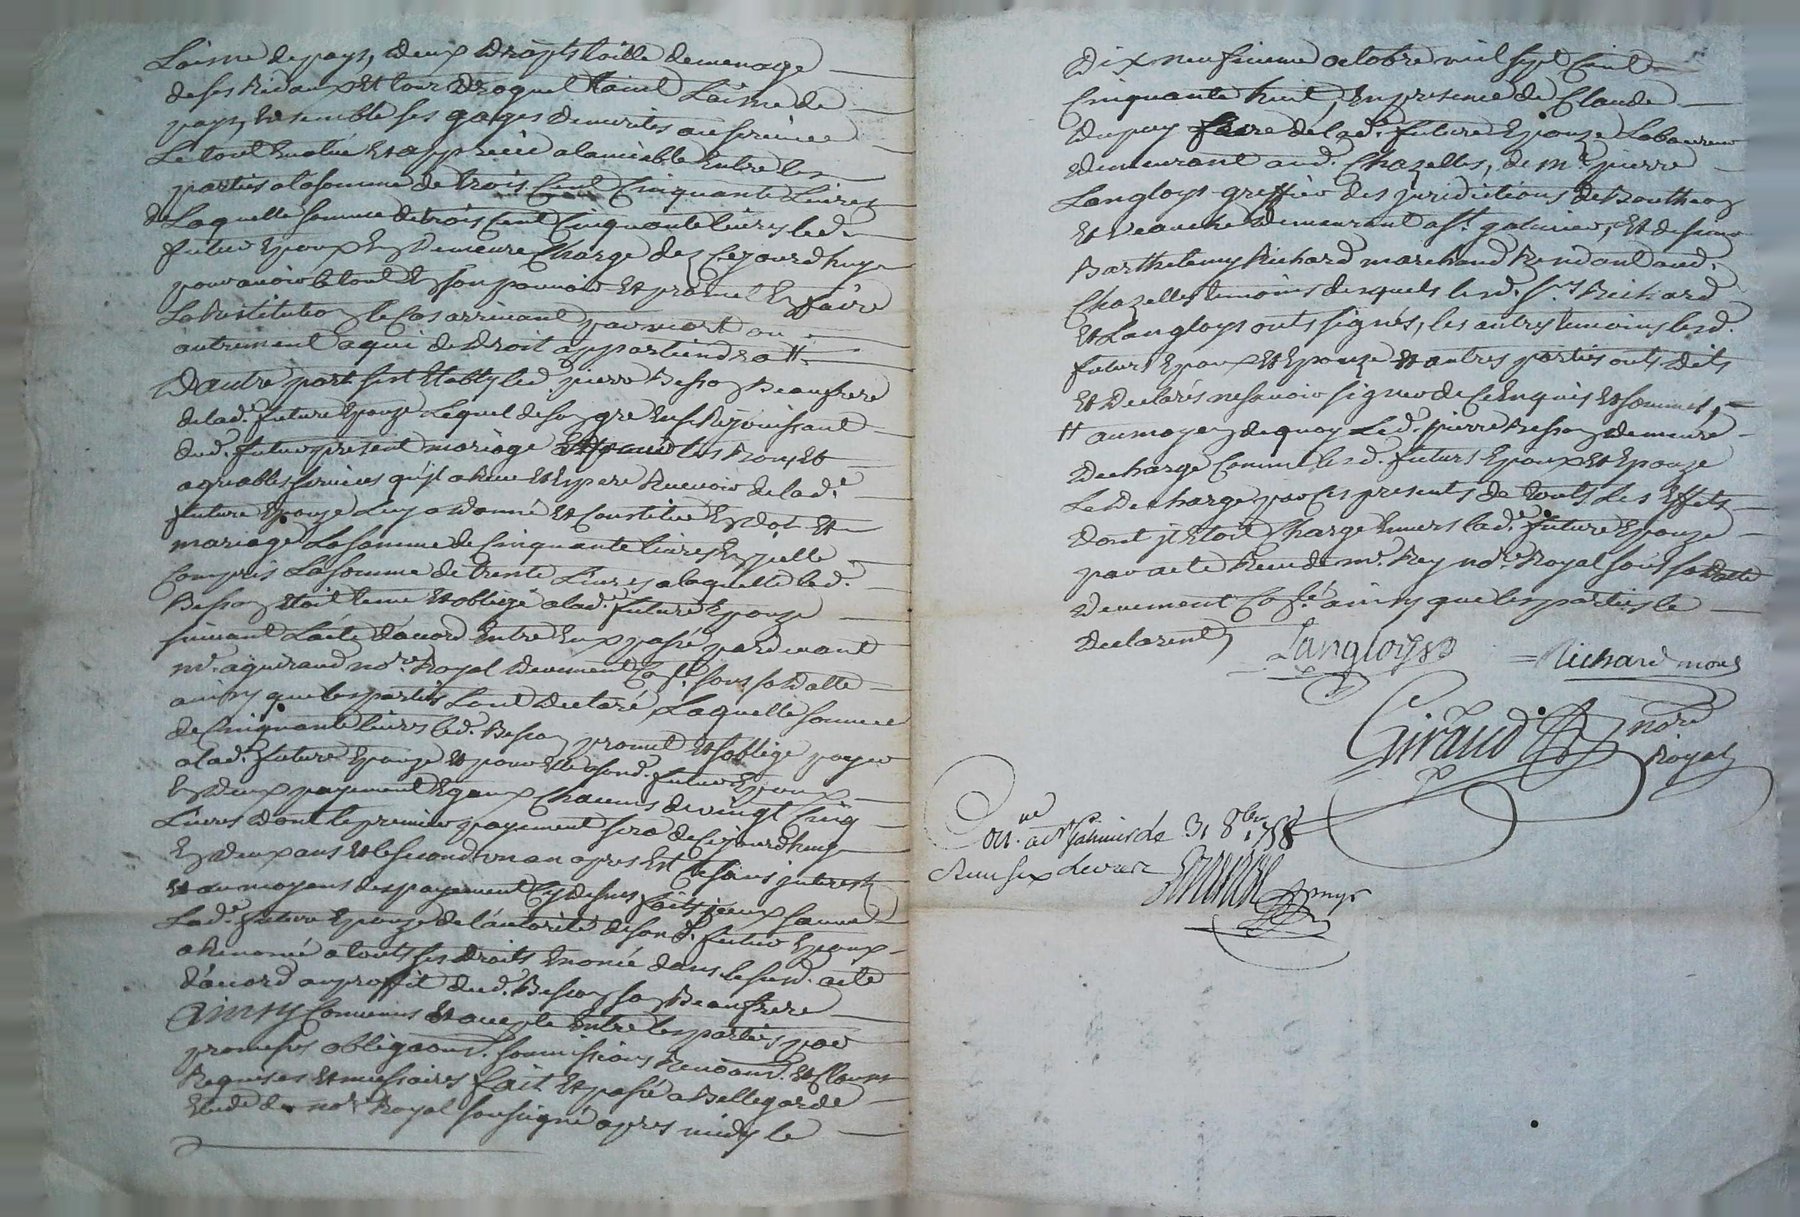 Laisne de pays, deux Draps toille de menage
de ses Ridaux Et tour Droguet Laine de
pays, Ensemble ses gages Demerites au service
Le tout Evalué Et apprecié alamiable Entre les
parties alasomme de trois Cent Cinquante Livres
de Laquelle somme detrois Cent Cinquante livres led.
futur Epoux En Demeure Chargé dez Cejourdhuy
pour avoir le tout En son pouvoir Et promet En faire
La Restitution le Cas arrivant par mort ou
autrement a qui de Droit appartiendra #
D'autre part sest Etably led. pierre Besson Beaufrere
de lad. future Epouze Lequel de son gré En se Rejouissant
dud. futur present mariage Et pour les Bons Et
agreables services qu'jl a Recu Et Espere Recevoir de lad.e
future Epouze Luy a Donné Et Constitué En dot Et
mariage La somme de Cinquante livres En jcelle
Compris La somme de trente Livres a laquelle led.
Besson Etoit tenu Et obligé a lad.e future Epouze
suivant L'acte d'acord Entre Eux passé pardevant
m.e aguiraud no.re Royal Devement Co.lé sous sa Datte
ainsy que les parties L'ont Declaré Laquelle somme
de Cinquante livres led. Besson promet Et soblige payer
a lad. future Epouze Et pour Elle a sond. futur Epoux
En Deux payement Egaux Chacuns de vingt Cinq
Livres Dont le premier payement sera de Cejourdhuy
En Deux ans Et le second un an apres Et Ce sans jnterest
Et au moyens des payement Cy dessus faits jceux
Lad.e future Epouze de l'autorité de sond. futur Epoux
a Renoncé a touts ses Droits Enoncé dans le susd. acte
d'acord au proffit dud. Besson son Beaufrere
Ainsy Convenus Et accepté Entre les parties par
promesses obligaons. soumissions Renoaons. Et Clauses
Requises Et necessaires fait Et passé a Bellegarde
Etude du no.re Royal soussigné apres midy le
Dix neufvieme octobre mil sept Cent
Cinquante huit, En presence de Claude
Dupuy frere de lad.e future Epouze Laboureur
demeurant aud. Chazelles, de m.e pierre
Langloys greffier des juridictions de Boutheon
Et Veauche Demeurant a S.t galmier, Et de sieur
Barthelemy Richard marchand Residant aud.
Chazelles temoins desquels lesd. S.rs Richard
Et Langloys onts signés, les autres temoins lesd.
futurs Epoux Et Epouze Et autres parties onts Dits
Et Declarés ne savoir signer de Ce Enquis Et sommés,
# au moyen de quoy Led. pierre Besson Demeure
Decharge Comme lesd. futurs Epoux Et Epouze
Le Decharge par Ces presents de touts les Effets
Dont jl Etoit Chargé Envers lad.e future Epouze
par acte Recu de m.e Rey no.re Royal sous sa Datte
Devement Co.lé ainsy que les parties le
Declarent,
Langloys = Richard
Giraud no.re
Royal
Con.lé a S.t galmier le 31 8bre 1758